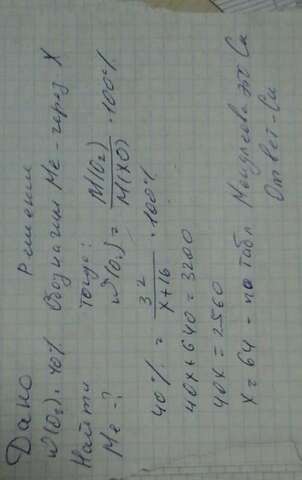 Дано
Решение
ω(O₂) = 40%
Найти
Me - ?
Обозначим Me - через X
Тогда:
ω(O₂) = M(O₂) / M(XO) · 100%
40% = 32 / x+16 · 100%
40x + 640 = 3200
40x = 2560
x = 64 - по табл Менделеева это Cu
Ответ - Cu